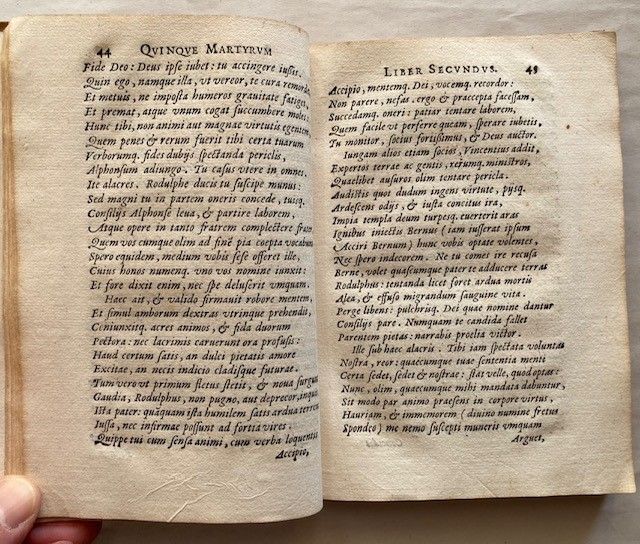 44 QVINQVE MARTYRVM
Fide Deo: Deus ipse iubet: tu accingere iussis.
Quin ego, namque illa, vt vereor, te cura remordet,
Et metuis, ne imposta humeros grauitate fatiget,
Et premat, atque vnum cogat succumbere moles:
Hunc tibi, non animi aut magnae virtutis egentem
Quem penes & rerum fuerit tibi certa tuarum
Verborumq. fides dubijs spectanda periclis,
Alphonsum adiungo. Tu casus vtere in omnes.
Ite alacres. Rodulphe ducis tu suscipe munus:
Sed magni tu in partem oneris concede, tuisq.
Consilijs Alphonse leua, & partire laborem,
Atque opere in tanto fratrem complectere frater
Quem vos cumque olim ad finē pia coepta vocabunt
Spero equidem, medium vobis sese offeret ille,
Cuius honos numenq. vno vos nomine iunxit:
Et fore dixit enim, nec spe deluserit vmquam.
Haec ait, & valido firmauit robore mentem,
Et simul amborum dextras vtrinque prehendit,
Coniunxitq. acres animos, & fida duorum
Pectora: nec lacrimis caruerunt ora profusis:
Haud certum satis, an dulci pietatis amore
Excitae, an necis indicio cladisque futurae.
Tum vero vt primum fletus stetit, & noua surgunt
Gaudia, Rodulphus, non pugno, aut deprecor, inquit
Ista pater: quāquam ista humilem satis ardua terrent
Iussa, nec infirmae possunt ad fortia vires.
Quippe tui cum sensa animi, cum verba loquentis
Accipio,
LIBER SECVNDVS. 45
Accipio, mentemq. Dei, vocemq. recordor:
Non parere, nefas. ergo & praecepta facessam,
Succedamq. oneri: patiar tentare laborem,
Quem facile vt perferre queam, sperare iubetis,
Tu monitor, socius fortissimus, & Deus auctor.
Iungam alios etiam socios, Vincentius addit,
Expertos terrae ac gentis, rerumq. ministros,
Quaelibet ausuros olim tentare pericla.
Audistis quot dudum ingens virtute, pysq.
Ardescens odijs, & iusta concitus ira,
Impia templa deum turpesq. euerterit aras
Ignibus iniectis Bernus (iam iusserat ipsum
Acciri Bernum) hunc vobis optate volentes,
Nec spero indecorem. Ne tu comes ire recusa
Berne, volet quascumque pater te adducere terras
Rodulphus: tentanda licet foret ardua mortis
Alea, & effuso migrandum sanguine vita.
Perge libens: pulchrisq. Dei quae nomine dantur
Consilijs pare. Numquam te candida fallet
Parentem pietas: narrabis proelia victor.
Ille sub haec alacris. Tibi iam spectata voluntas
Nostra, reor: quaecumque tuae sententia menti
Certa sedet, sedet & nostrae: stat velle, quod optas:
Nunc, olim, quaecumque mihi mandata dabuntur,
Sit modo par animo praesens in corpore virtus,
Hauriam, & immemorem (diuino numine fretus
Spondeo) me nemo suscepti muneris vmquam
Arguet,